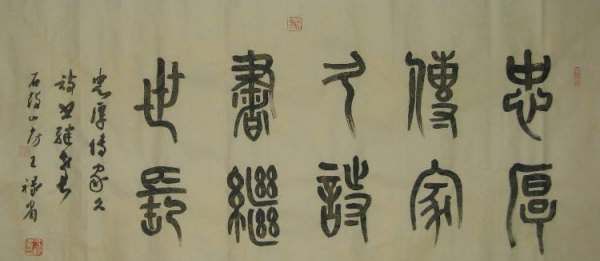 忠厚
傳家
久詩
書繼
世長
忠厚傳家久
詩書繼世長
石鼓山房王祿